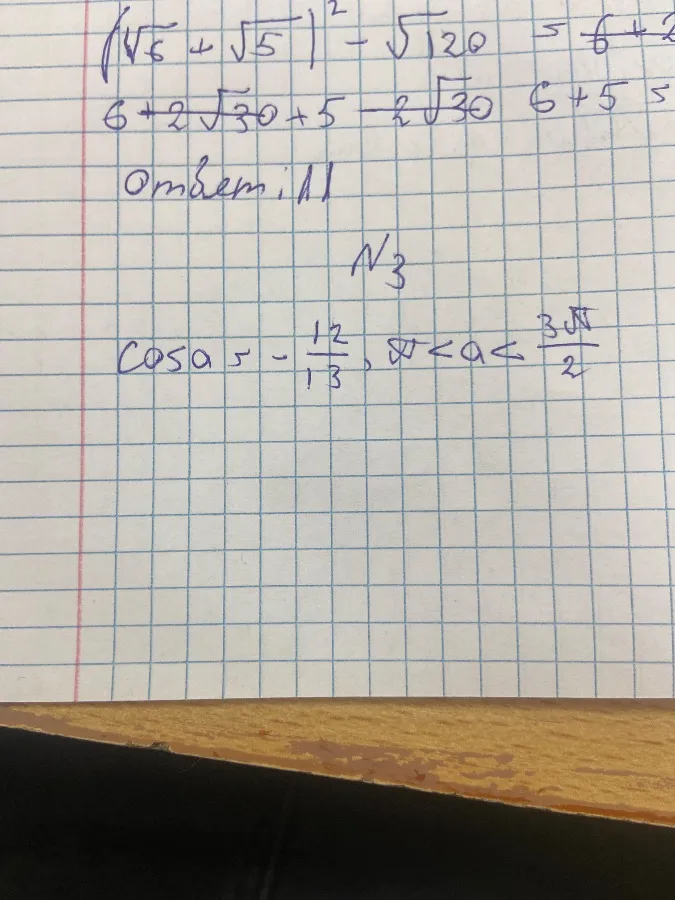 (√6 + √5)² - √120 = 6 + 2
6 + 2√30 + 5 - 2√30 6 + 5 =
Ответ: 11
N3
cos a = - 12/13, π < a < 3π/2